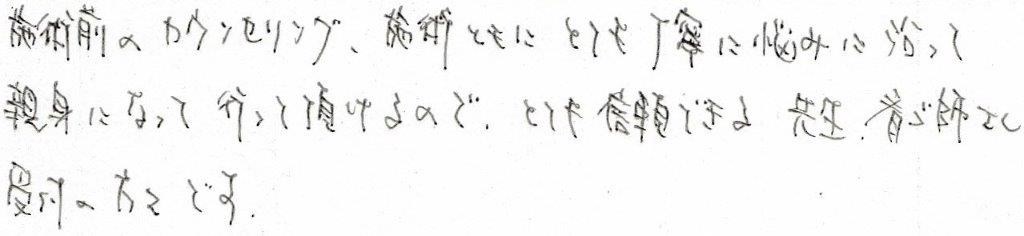 施術前のカウンセリング、施術ともにとても丁寧に悩みに沿って
親身になって行って頂けるので、とても信頼できる先生、看ご師さん
受付の方々です。